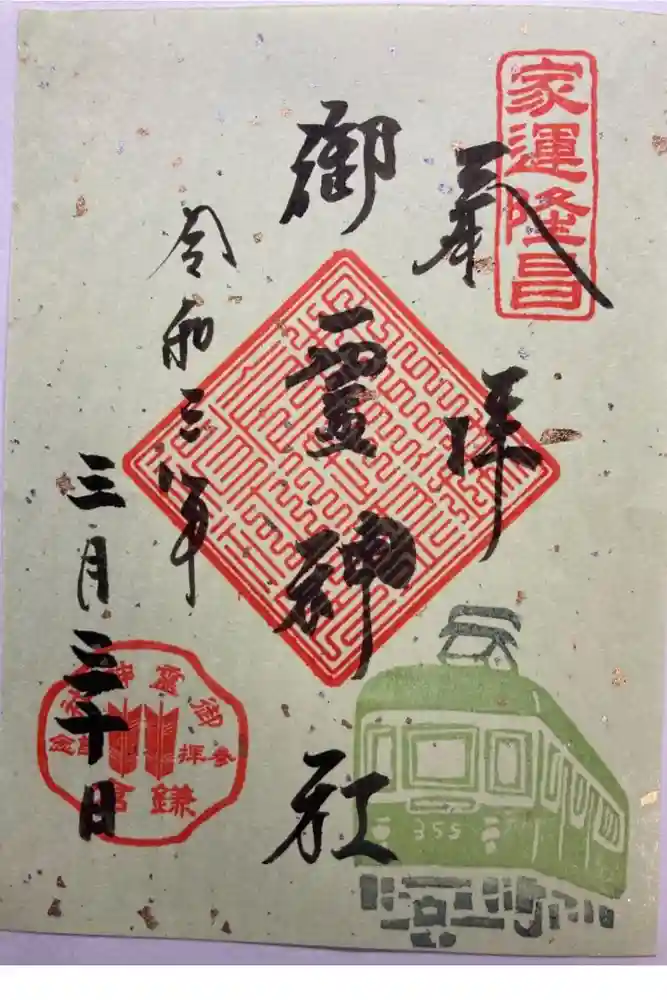 家運隆昌
奉拝
御霊神社
令和三年
三月三十日
御霊神社
参拝記念
鎌倉
355